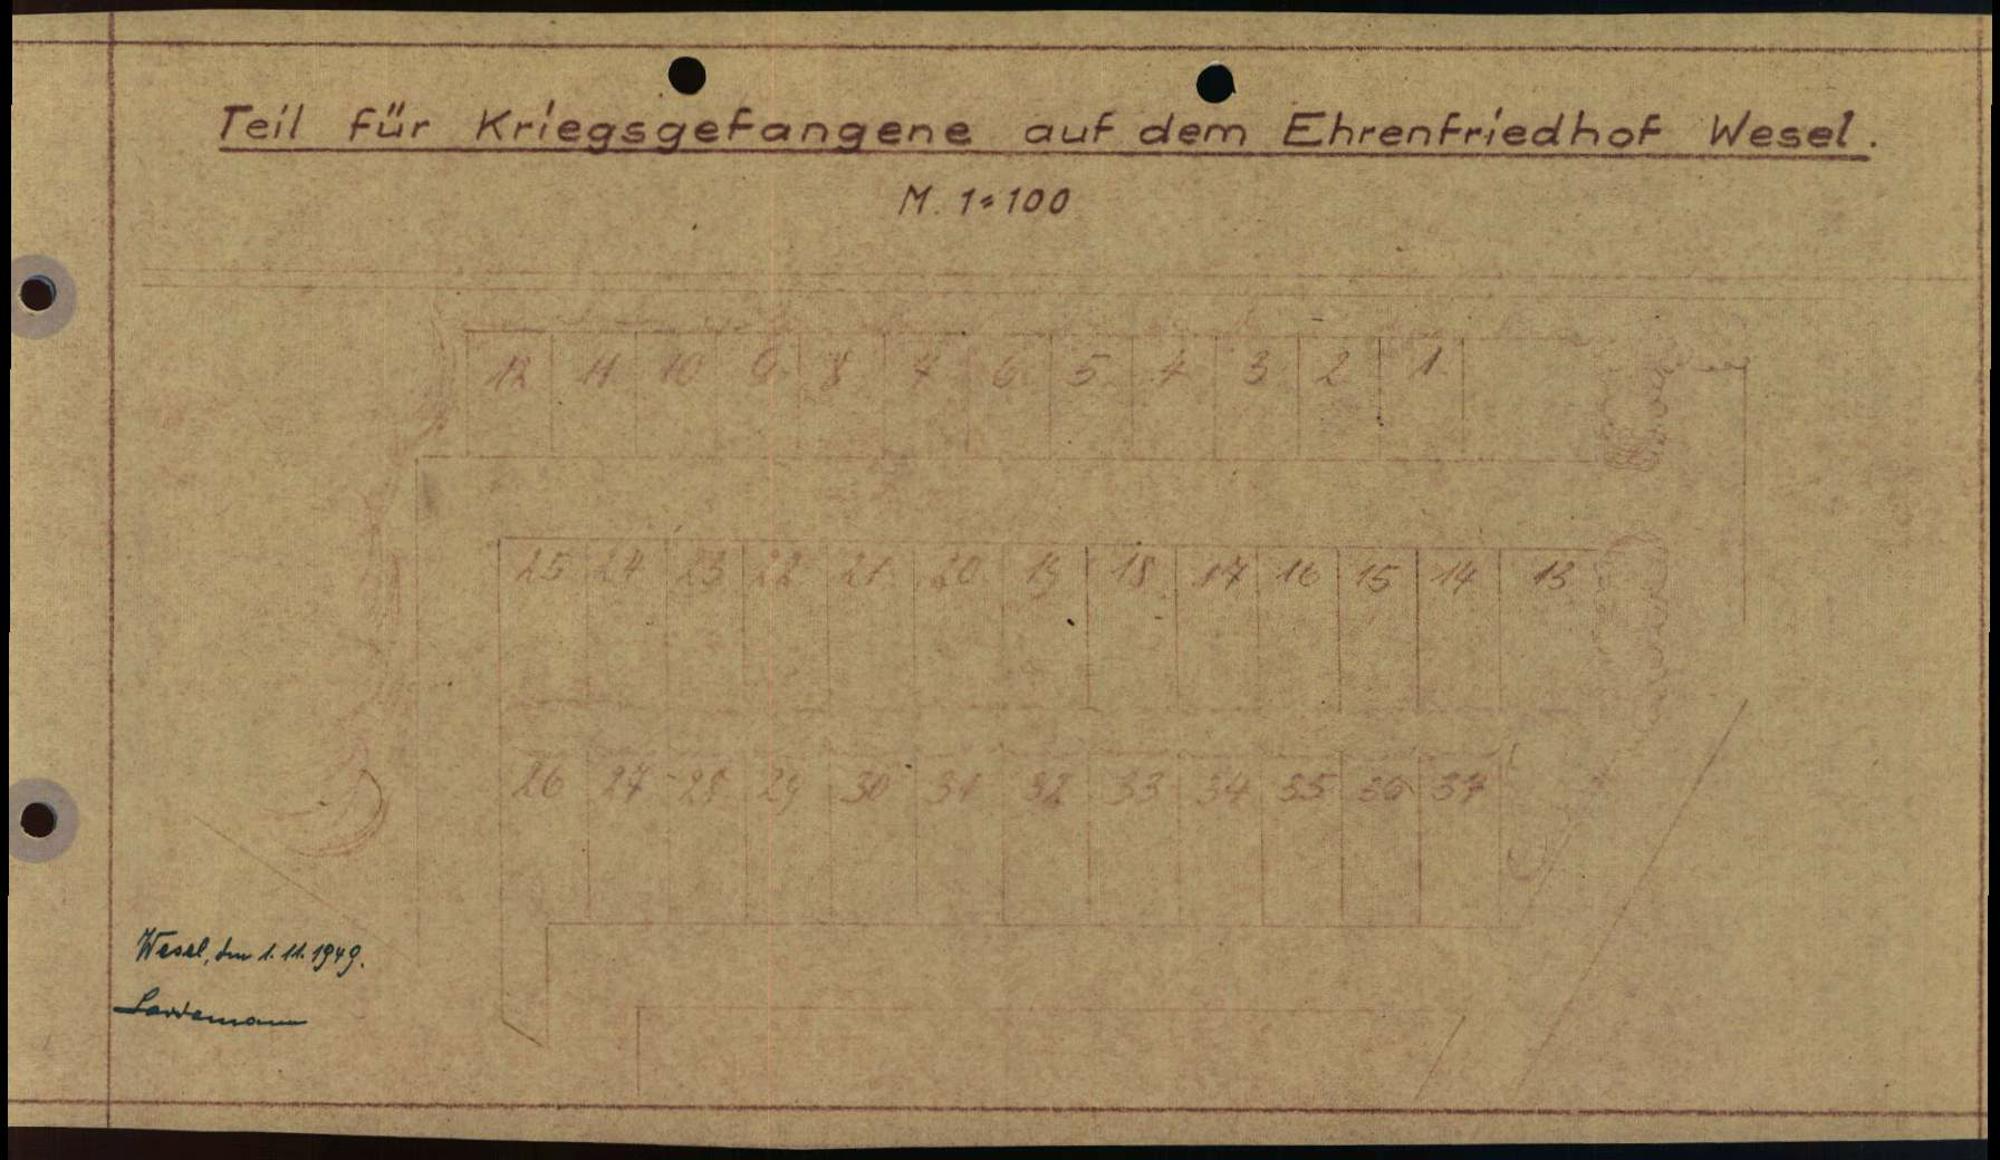 Teil für Kriegsgefangene auf dem Ehrenfriedhof Wesel.
M. 1:100
12 11 10 9 8 7 6 5 4 3 2 1
25 24 23 22 21 20 19 18 17 16 15 14 13
26 27 28 29 30 31 32 33 34 35 36 37
Wesel, den 1.11.1949.